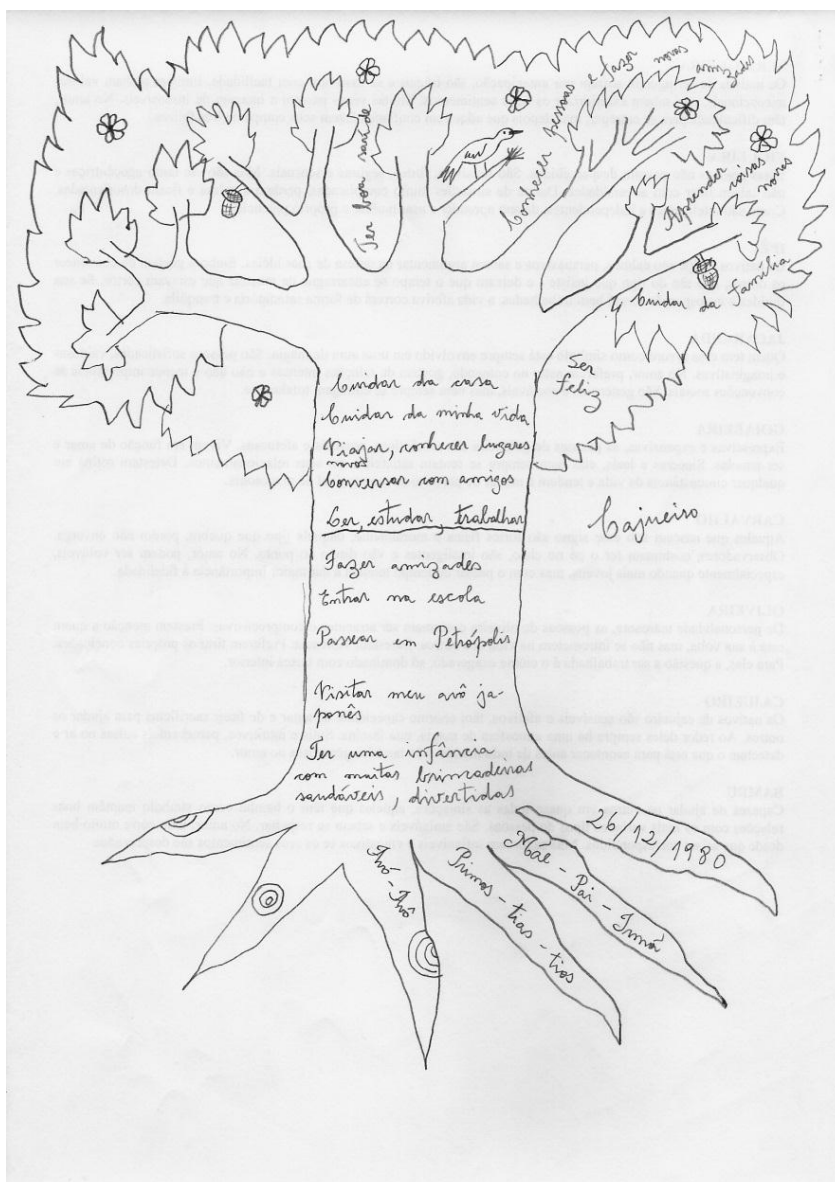 Ter boa saúde
Conhecer pessoas e fazer novas amizades
Aprender
coisas
novas
Cuidar da família
Ser
Feliz
Cuidar da casa
Cuidar da minha vida
Viajar, conhecer lugares
novos
Conversar com amigos
Ler, estudar, trabalhar
Cajueiro
Fazer amizades
Entrar na escola
Passear em Petrópolis
Visitar meu avô ja-
ponês
Ter uma infância
com muitas brincadeiras
saudáveis, divertidas
26/12/1980
Mãe - Pai - Irmã
Primos - tias - tios
Avó-Avô